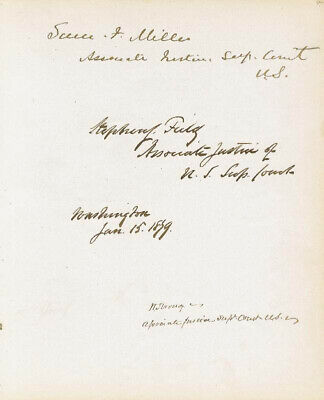 Sam. F. Miller
Associate Justice Sup. Court
U.S.
Stephen J. Field
Associate Justice of
U. S. Sup. Court
Washington
Jan. 15. 1879.
W Strong
Associate Justice Sup. Court U.S.